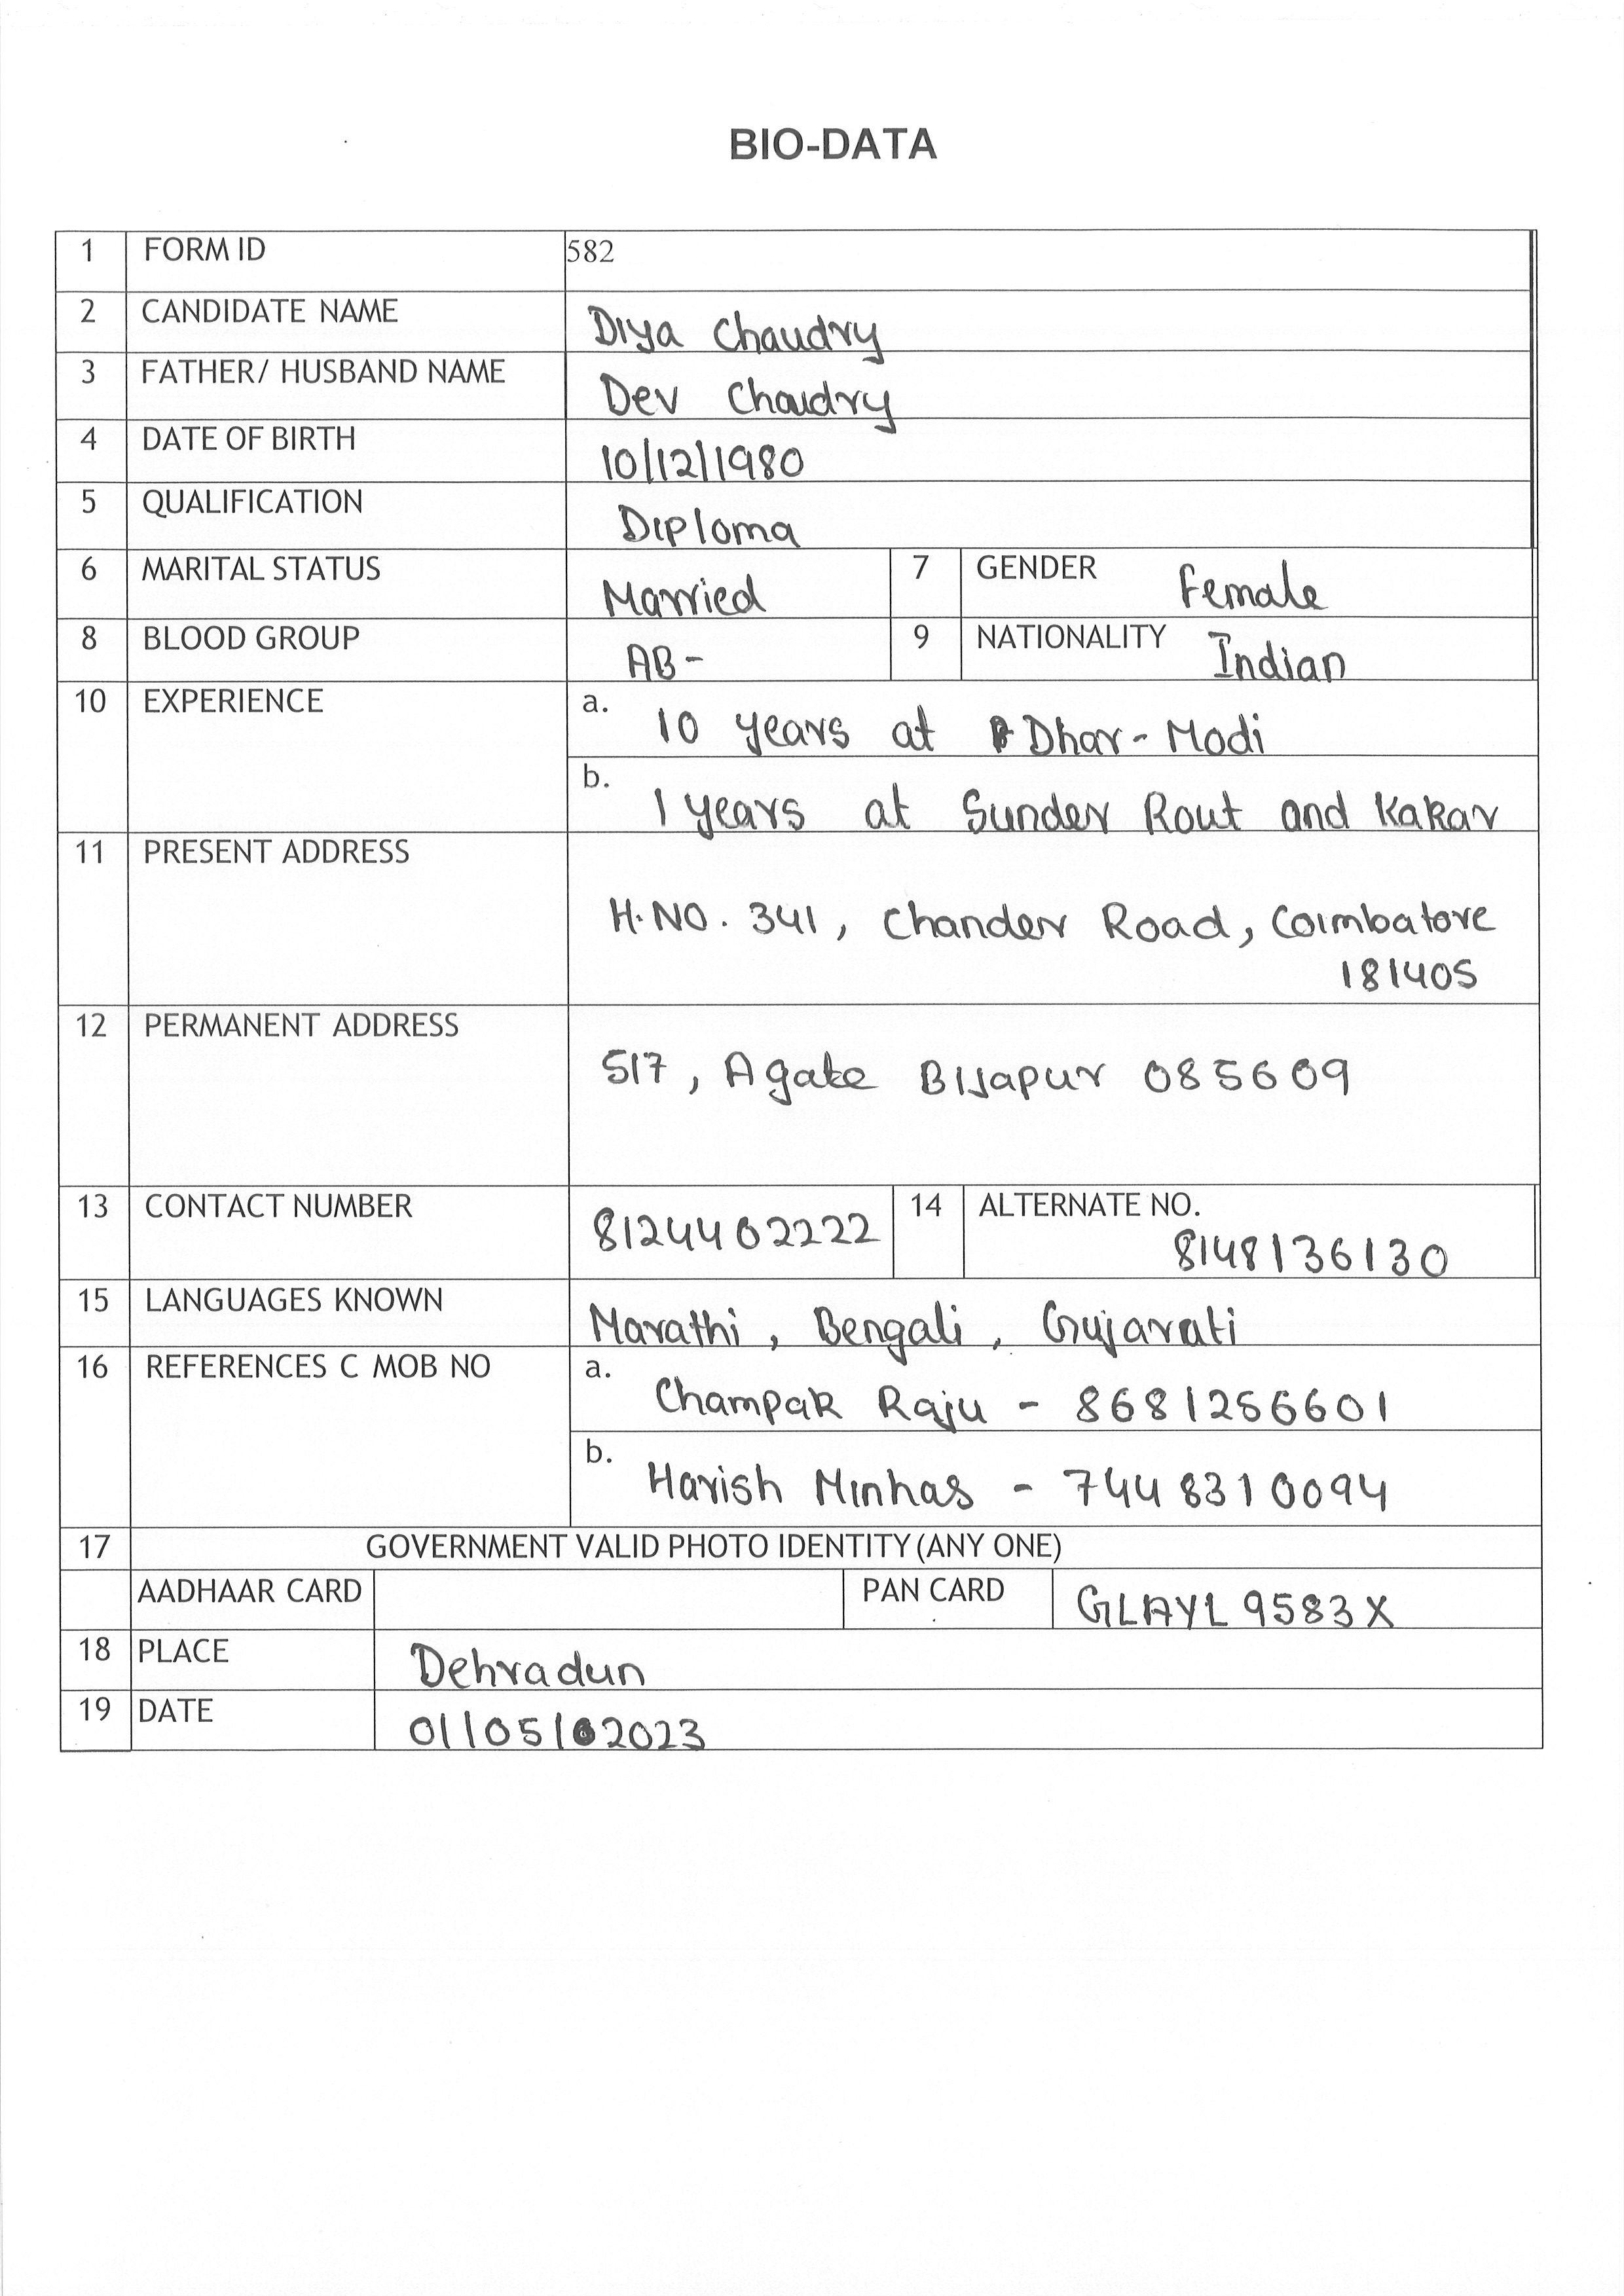 BIO-DATA
1 FORM ID 582
2 CANDIDATE NAME Diya Chaudry
3 FATHER/ HUSBAND NAME Dev Chaudry
4 DATE OF BIRTH 10/12/1980
5 QUALIFICATION Diploma
6 MARITAL STATUS Married 7 GENDER Female
8 BLOOD GROUP AB- 9 NATIONALITY Indian
10 EXPERIENCE a. 10 years at Dhar-Modi
b. 1 years at Sunder Rout and Kakar
11 PRESENT ADDRESS
H.NO. 341, Chander Road, Coimbatore
181405
12 PERMANENT ADDRESS
517, Agate Bijapur 085609
13 CONTACT NUMBER 8124402222 14 ALTERNATE NO. 8148136130
15 LANGUAGES KNOWN Marathi, Bengali, Gujarati
16 REFERENCES C MOB NO a. Champak Raju - 8681256601
b. Harish Minhas - 7448310094
17 GOVERNMENT VALID PHOTO IDENTITY (ANY ONE)
AADHAAR CARD PAN CARD GLAYL9583X
18 PLACE Dehradun
19 DATE 01/05/2023